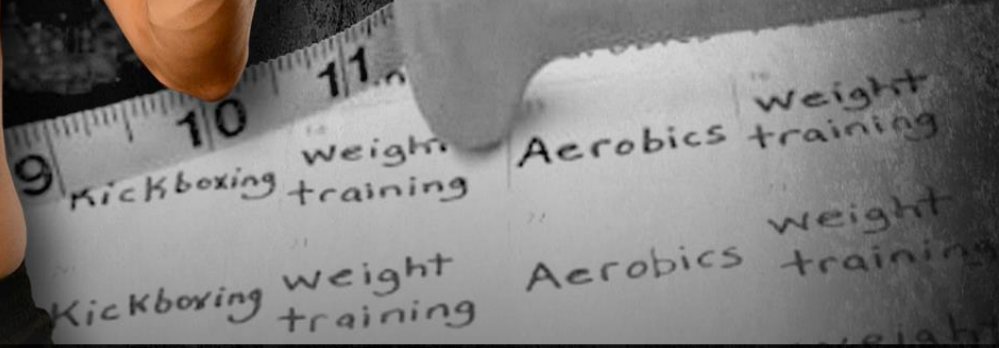 9 10 11
Kickboxing weight training Aerobics weight training
Kickboxing weight training Aerobics weight training
weight